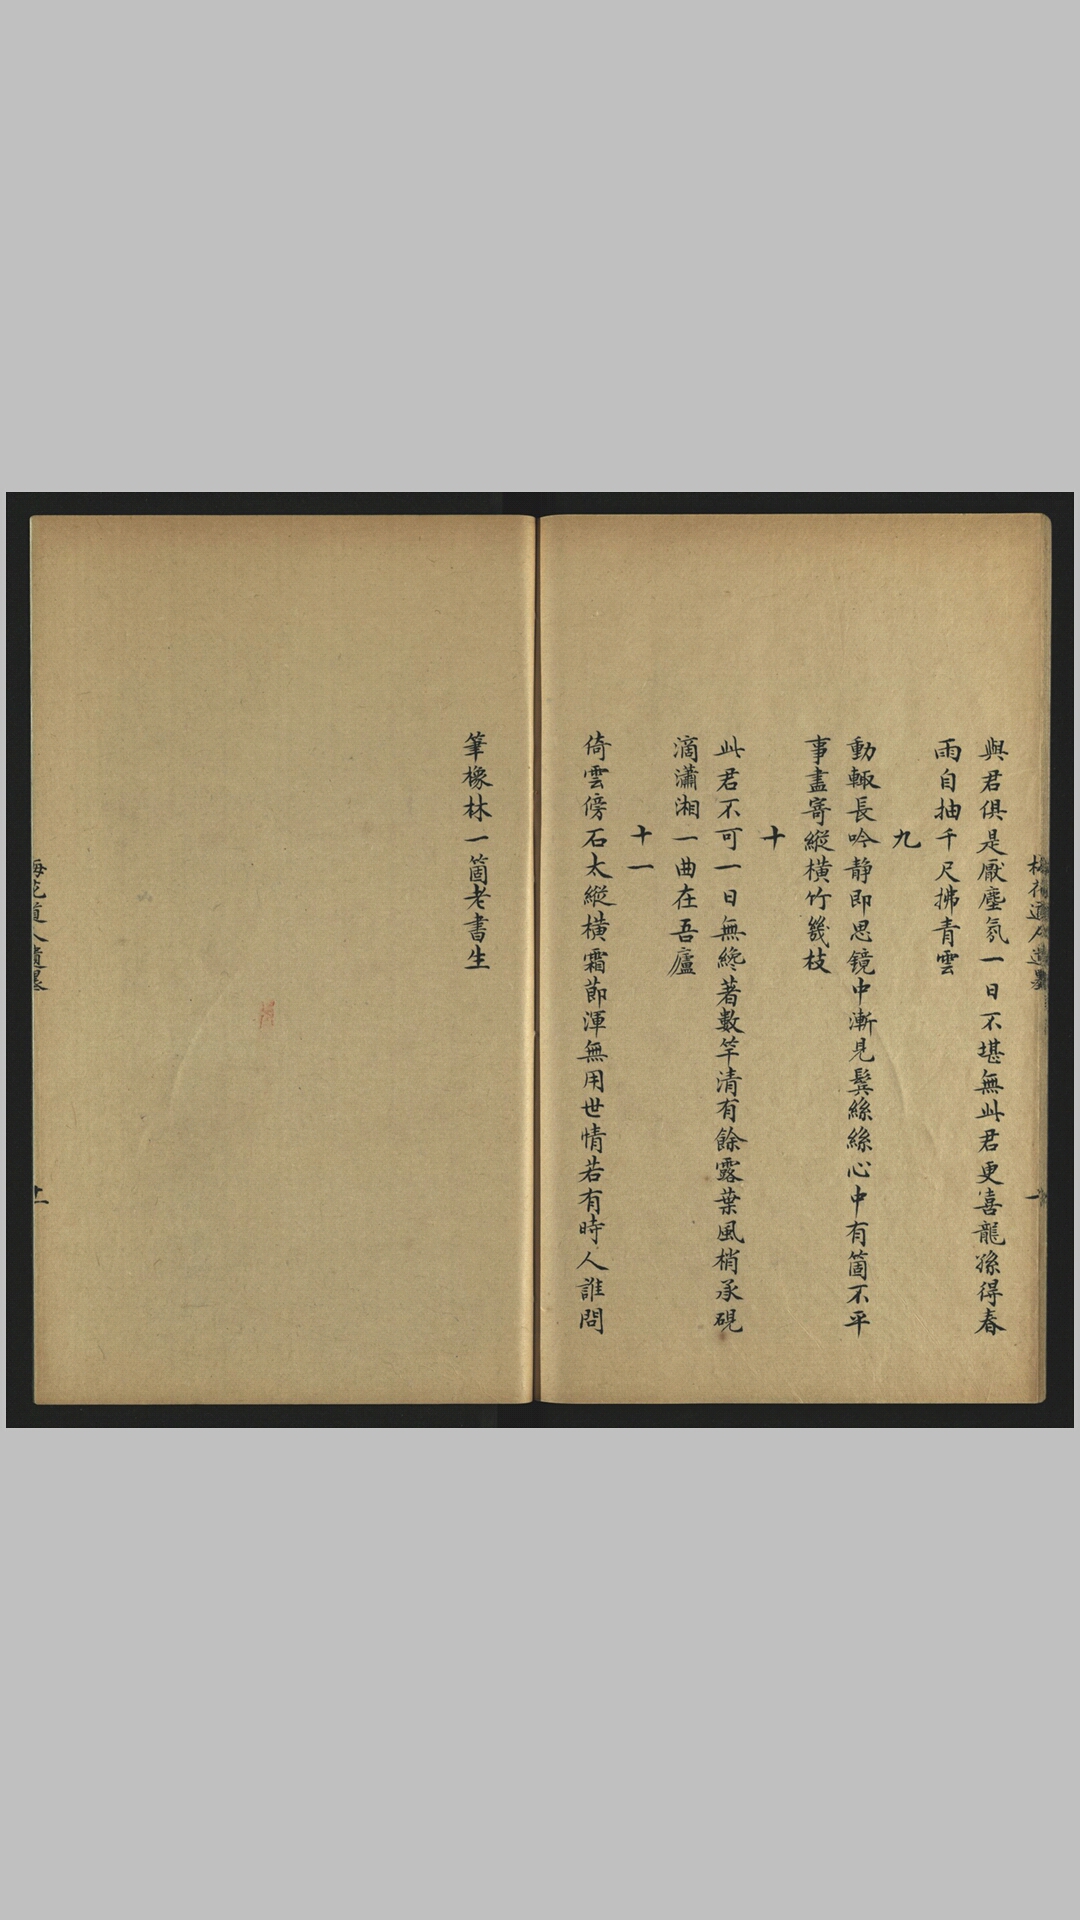 與君俱是厭塵氛一日不堪無此君更喜龍孫得春
雨自抽千尺拂青雲
九
動輒長吟静即思镜中漸見鬓絲絲心中有箇不平
事盡寄縱橫竹幾枝
十
此君不可一日無纔著數竿清有餘露葉風梢承硯
滴瀟湘一曲在吾廬
十一
倚雲傍石太縱橫霜節渾無用世情若有時人誰問
筆橡林一箇老書生
梅花道人遺墨